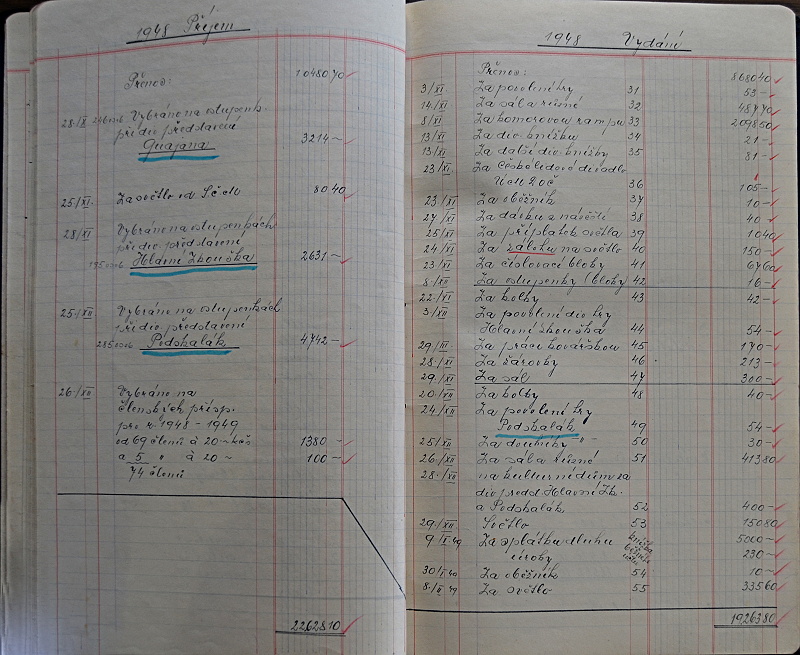 1948 Příjem
Přenos: 1048070
28/X 246 osob Vybráno na vstupenk.
při div. představení
Guajana 3214 -
25/XI Za světlo od Sčeli 8040
28/XI Vybráno na vstupenkách
při div. představení
195 osob Hlavní Zkouška 2631 -
25/XII Vybráno na vstupenkách
při div. představení
285 osob Podskalák 4742 -
26/XII Vybráno na
členských přísp.
pro r. 1948 - 1949
od 69 členů à 20 - kčs 1380 -
a 5 " à 20 - 100 -
74 členů
2262810
1948 Vydání
Přenos: 868040
3/XI Za povolení hry 31 53 -
14/XI Za sál a různé 32 48770
8/XI Za komorovou rampu 33 209850
13/XI Za div. knížku 34 21 -
13/XI Za další div. knížky 35 81 -
23/XI Za Českolidové divadlo
Úč. 2 oč 36 105 -
23/XI Za oběžník 37 10 -
27/XI Za dávku z návěští 38 40
25/XI Za příplatek světla 39 1040
24/XI Za zálohu na světlo 40 150 -
23/XI Za číslovací bloky 41 6760
8/XII Za vstupenky (bloky) 42 16 -
22/XII Za kolky 43 42 -
3/XII Za povolení div. hry
Hlavní Zkouška 44 54 -
29/XI Za práci kovářskou 45 170 -
28/XI Za žárovky 46 213 -
29/XI Za sál 47 300 -
20/XII Za kolky 48 40 -
24/XII Za povolení hry
Podskalák 49 54 -
25/XII Za douchičky " 50 30 -
26/XII Za sál a různé 51 41380
28/XII na kulturní důmu za
div. předst. Hlavní Zk.
a Podskalák 52 400 -
29/XII Světlo 53 15080
9/I 49 Za splátku dluhu 5000 -
úroky 230 -
30/I 49 Za oběžník 54 10 -
8/II 49 Za světlo 55 33560
1926380